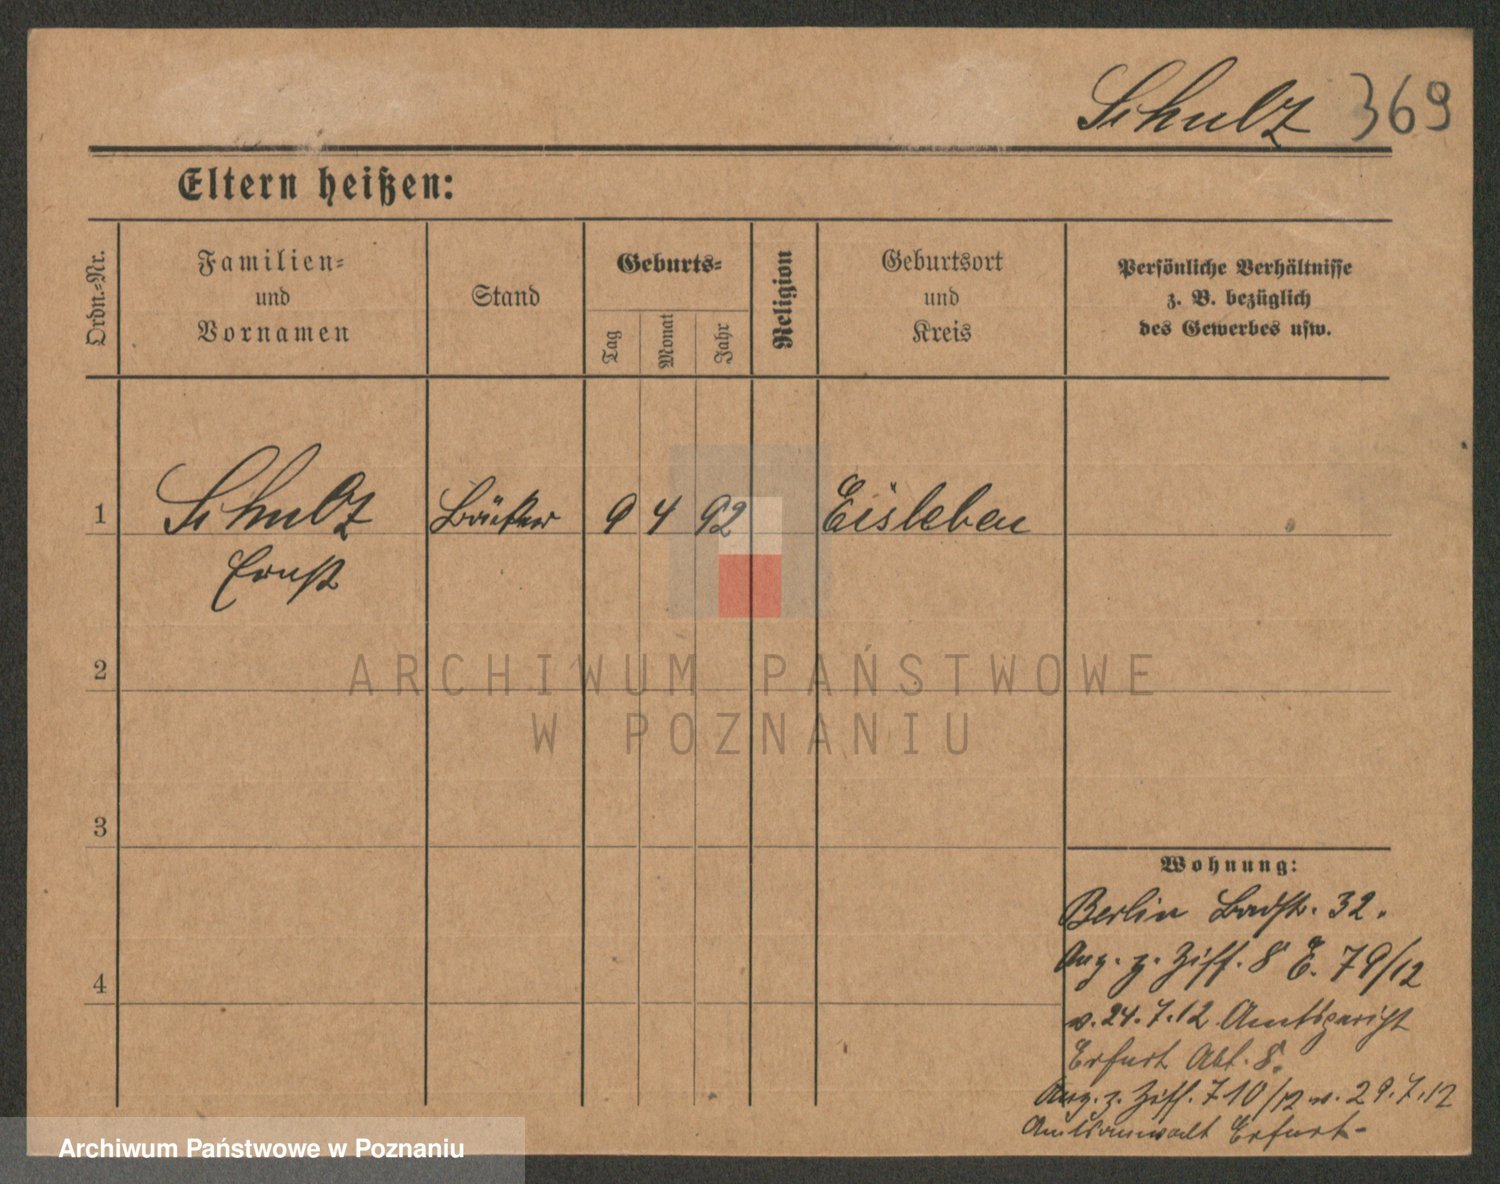 Schulz 369
Eltern heißen:
Ordn.-Nr.
Familien-
und
Vornamen
Stand
Geburts-
Tag
Monat
Jahr
Religion
Geburtsort
und
Kreis
Persönliche Verhältnisse
z. B. bezüglich
des Gewerbes usw.
1 Schulz Bäcker 9 4 92 Eisleben
Ernst
2
ARCHIWUM PAŃSTWOWE
W POZNANIU
3
Wohnung:
Berlin Badstr. 32.
4
Anz. z. Ziff. 8 E. 79/12
v. 24.7.12 Amtsgericht
Erfurt Abt. 8.
Anz. z. Ziff. 710/12 v. 29.7.12
Amtsanwalt Erfurt
Archiwum Państwowe w Poznaniu